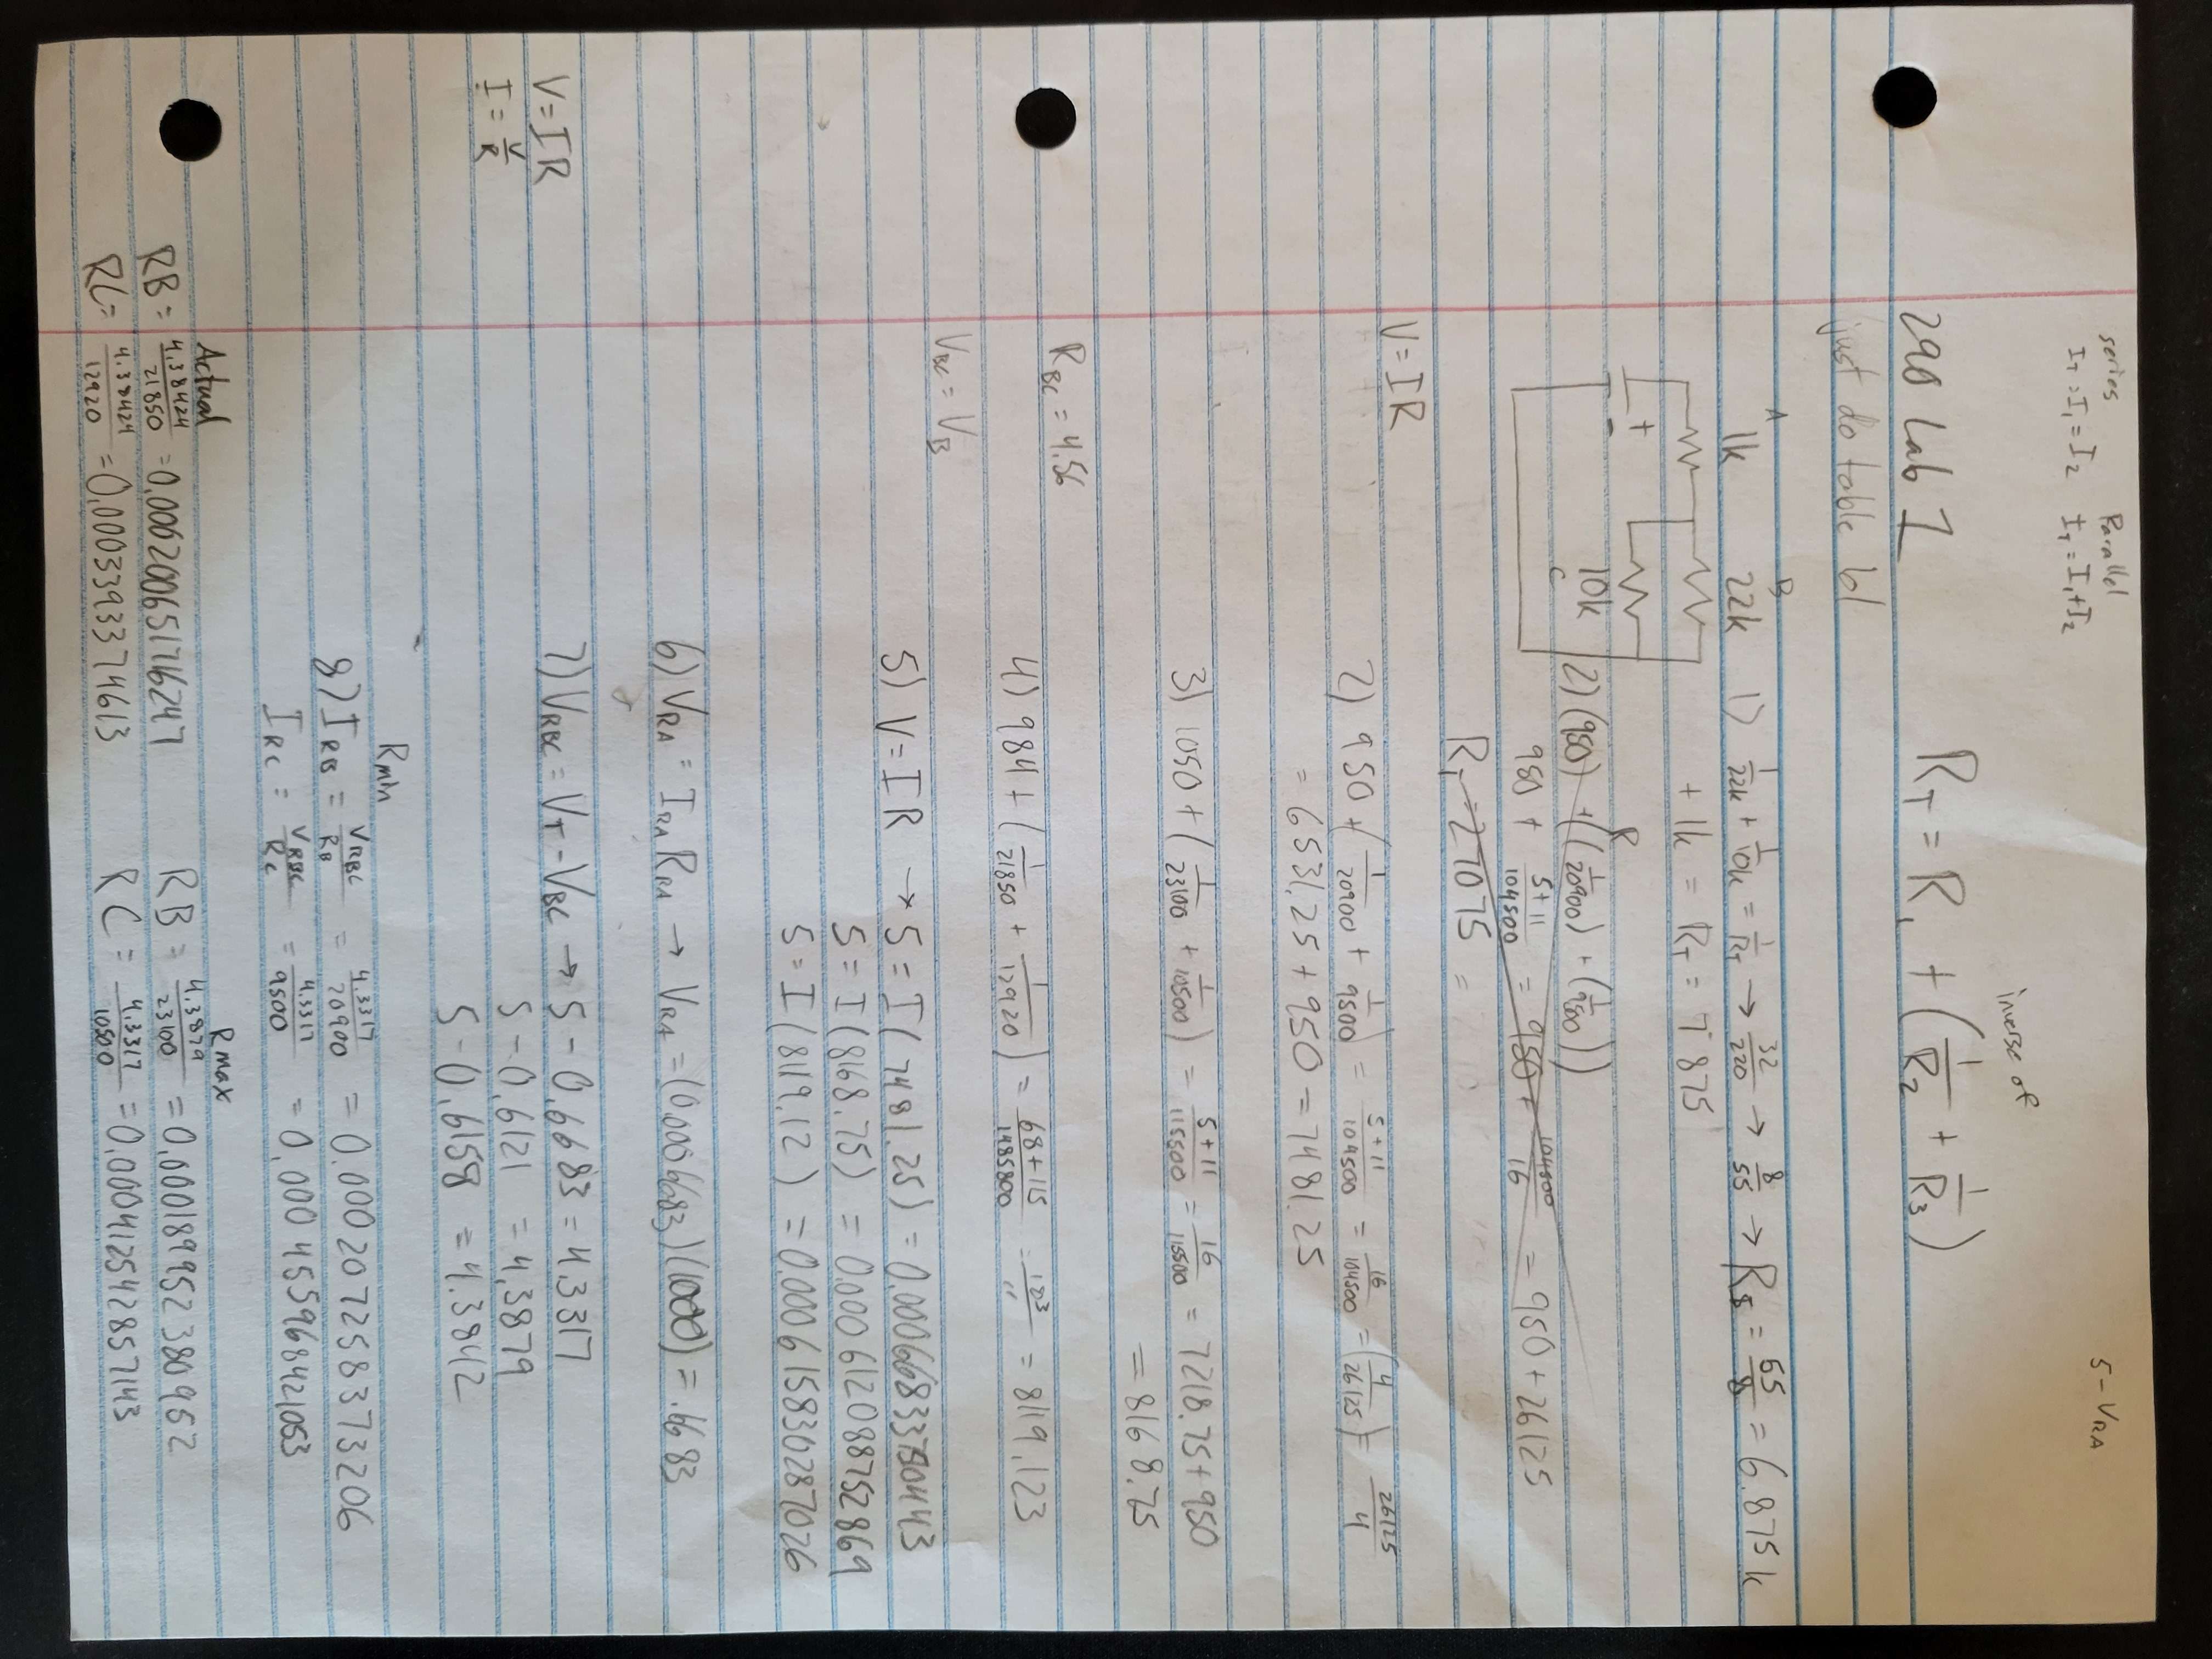 series Parallel 5-VRA
IT = I1 = I2 IT = I1 + I2
inverse of
290 Lab 1 RT = R1 + (1/R2 + 1/R3)
just do table 61
A B
1k 22k 1) 1/22k + 1/10k = 1/RT → 32/220 → 8/55 → R5 = 55/8 = 6.875k
+ 1k = RT = 7875
+ -
10k
C
2) (950) + ((1/20900) + (1/9500))
950 + 5+11/104500 = 950 + 104500/16 = 950 + 26125
RT = 27075 =
V = IR
2) 950 + (1/20900 + 1/9500) = 5+11/104500 = 16/104500 = (4/26125) = 26125/4
= 6531.25 + 950 = 7481.25
3) 1050 + (1/23100 + 1/10500) = 5+11/115500 = 16/115500 = 7218.75 + 950
= 8168.75
RBC = 4.56
4) 984 + (1/21850 + 1/12920) = 68+115/1485800 = 183/" = 8119.123
VBC = VB
5) V = IR → 5 = I(7481.25) = 0.00066833750443
5 = I(8168.75) = 0.000612088752869
5 = I(8119.12) = 0.000615830287026
6) VRA = IRA RRA → VRA = (0.0006683)(1000) = .6683
V = IR
I = V/R
7) VRBC = VT - VBC → 5 - 0.6683 = 4.3317
5 - 0.6121 = 4.3879
5 - 0.6158 = 4.3842
Rmin
8) IRB = VRBC/RB = 4.3317/20900 = 0.000207258373206
IRC = VRBC/RC = 4.3317/9500 = 0.000455968421053
Actual Rmax
RB = 4.38424/21850 = 0.000200651716247 RB = 4.3879/23100 = 0.000189952380952
RC = 4.38424/12920 = 0.000339337461 3 RC = 4.3317/10500 = 0.000412542857143